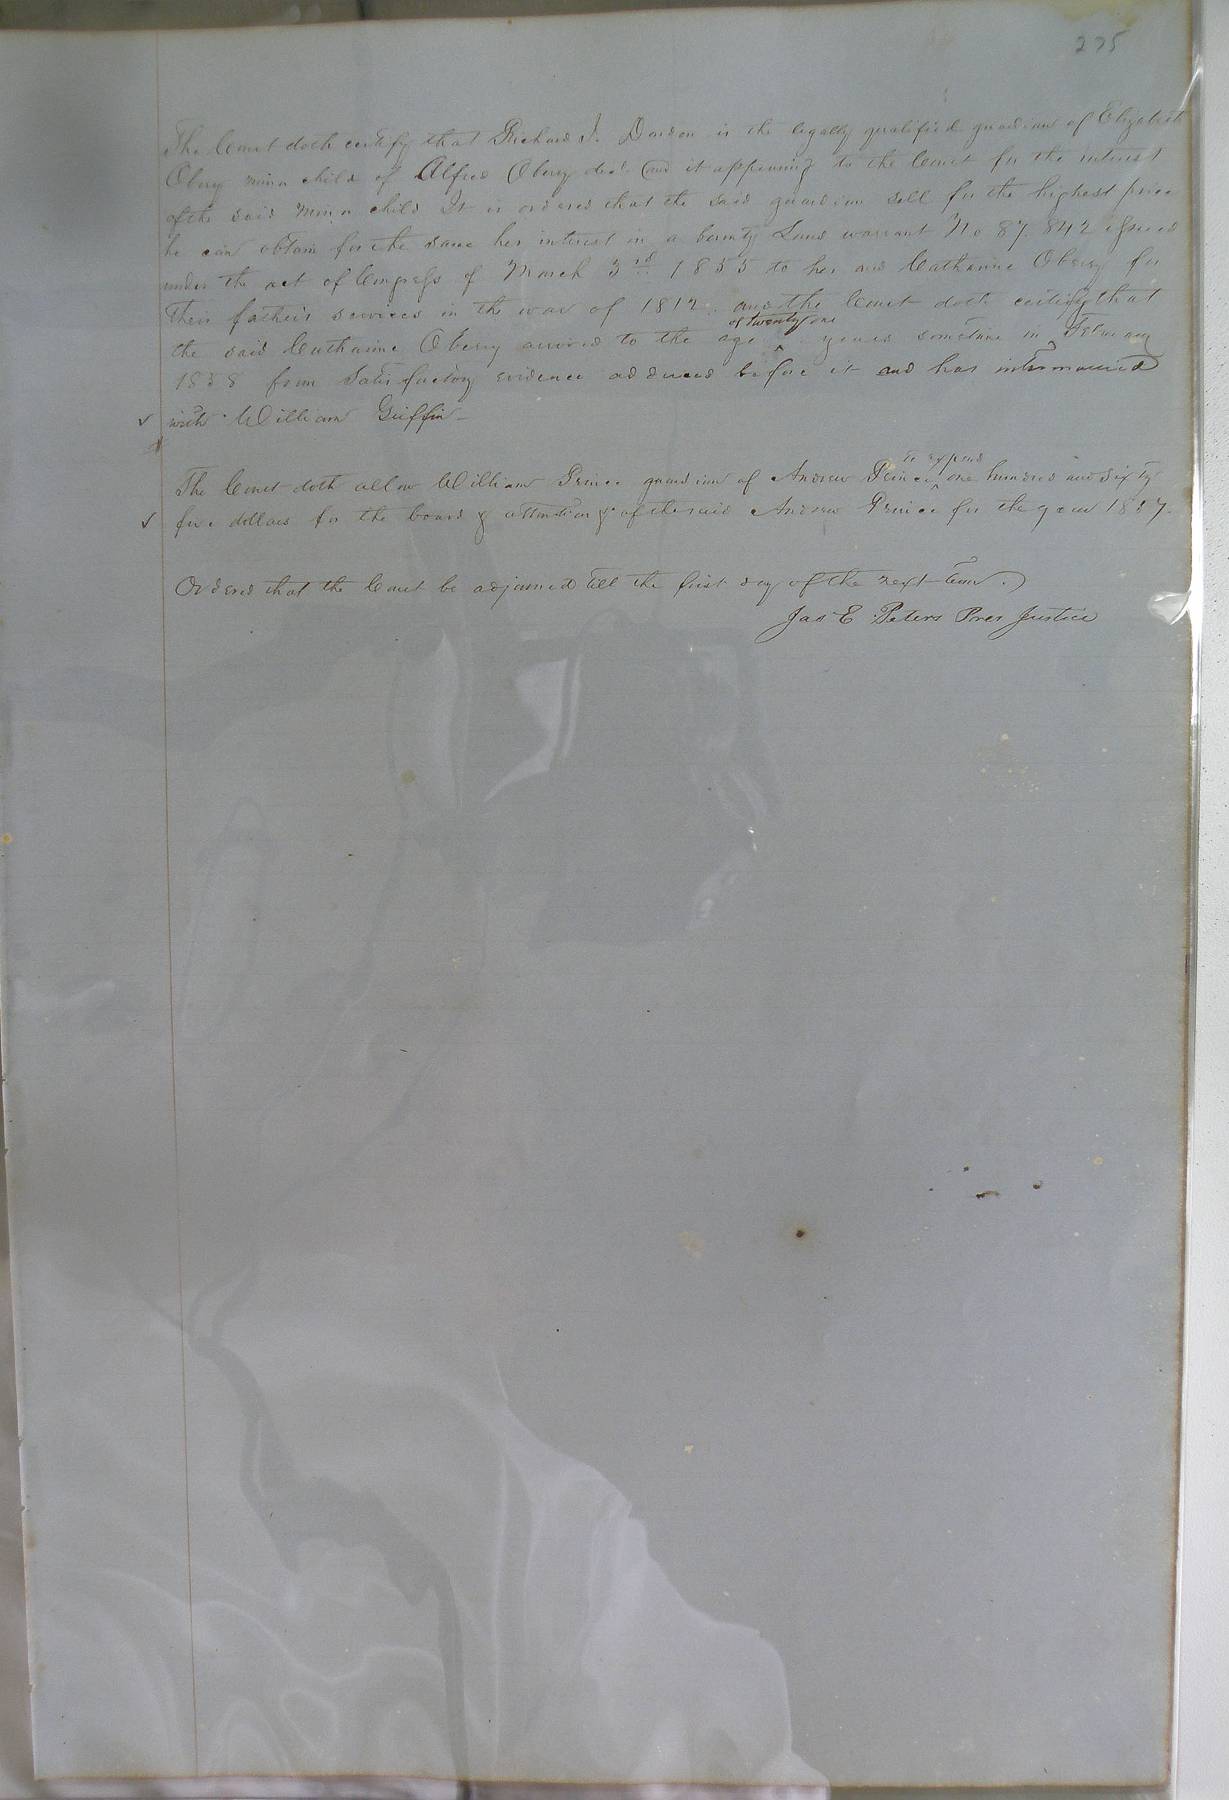 275
The Court doth certify that Richard J. Darden is the legally qualified guardian of Elizabeth
Obery minor child of Alfred Obery decd. and it appearing to the Court for the interest
of the said minor child It is ordered that the said guardian sell for the highest price
he can obtain for the same her interest in a bounty Land warrant No 87.842 issued
under the act of Congress of March 3rd 1855 to her and Catharine Oberry for
their father's services in the war of 1812. and the Court doth certify that
of twenty one
the said Catharine Oberry arrived to the age ^ years sometime in February
1858 from satisfactory evidence adduced before it and has intermarried
✓ with William Griffin -
to expend
The Court doth allow William Prince guardian of Andrew Prince ^ one hundred and sixty
✓ five dollars for the board & attention & of the said Andrew Prince for the year 1857.
Ordered that the Court be adjourned till the first day of the next Term.
Jas E Peters Pres Justice